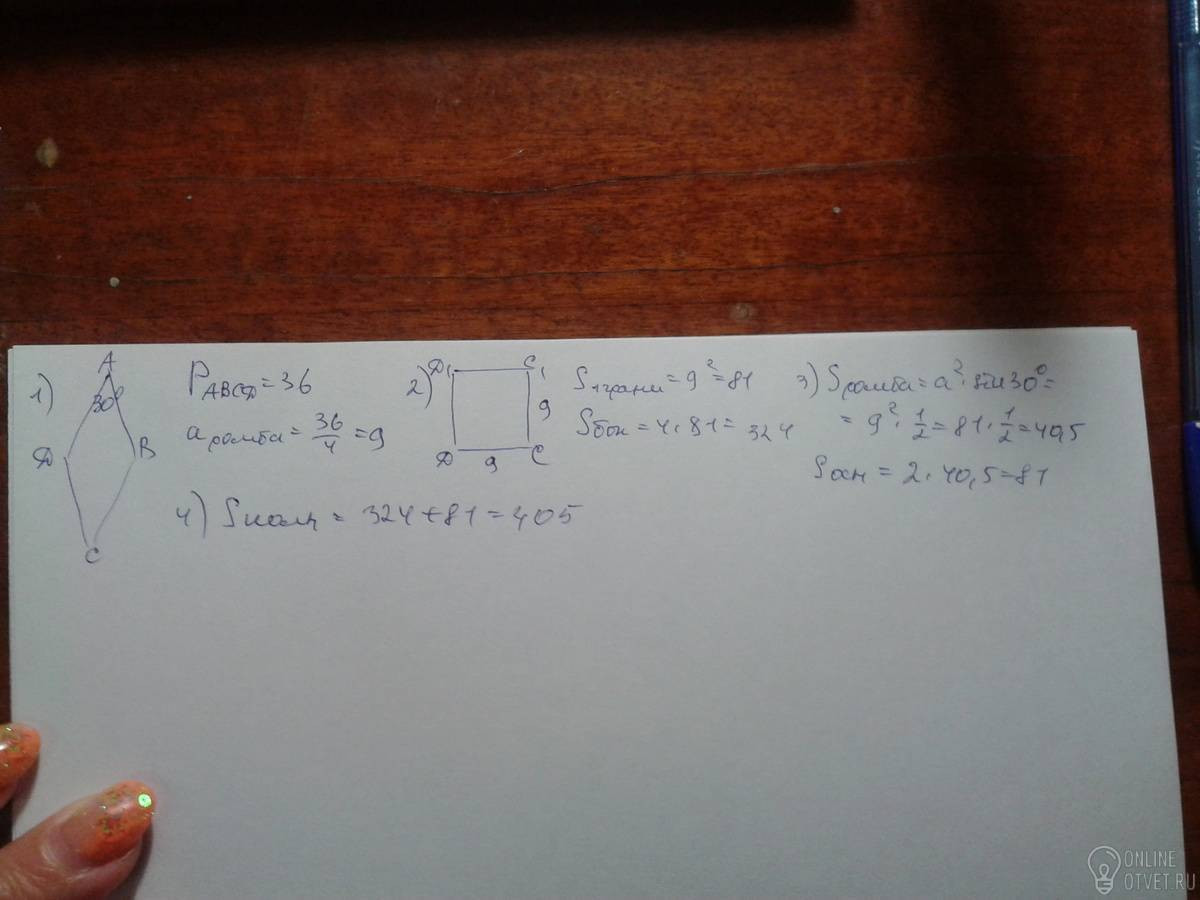 1)
A
30°
D
B
C
P_ABCD = 36
a ромба = 36/4 = 9
2)
D₁ C₁
9
D 9 C
S 1 грани = 9² = 81
Sбок = 4 · 81 = 324
3) Sромба = a² · sin30° =
= 9² · 1/2 = 81 · 1/2 = 40,5
Sосн = 2 · 40,5 = 81
4) Sполн = 324 + 81 = 405
ONLINE
OTVET.RU